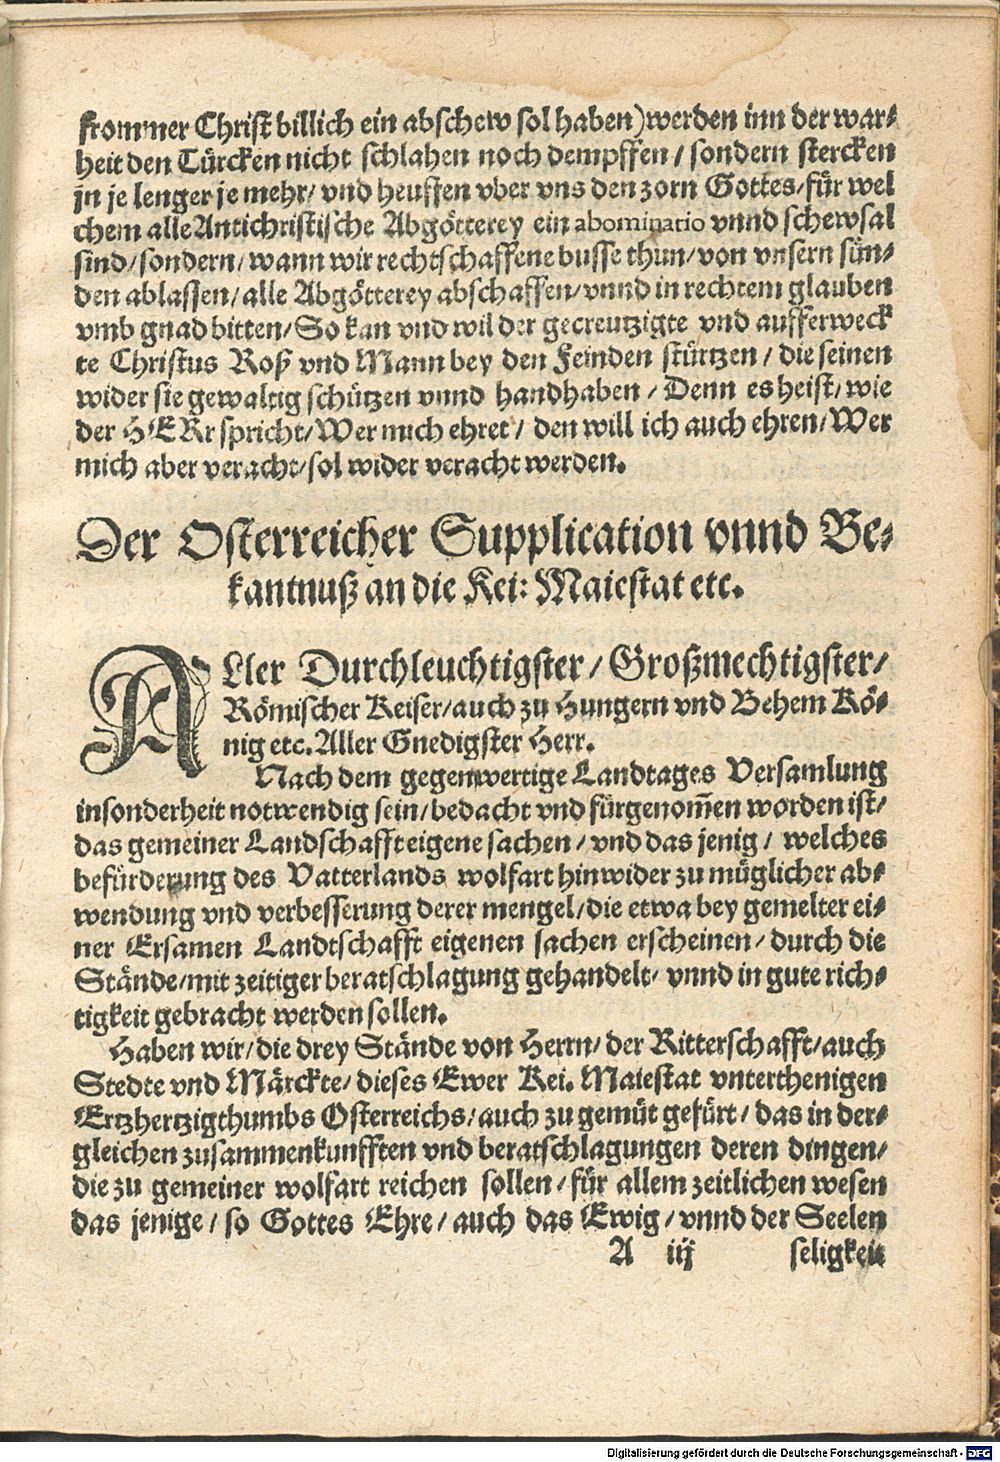 frommer Christ billich ein abschew sol haben) werden inn der war⸗
heit den Türcken nicht schlahen noch dempffen / sondern stercken
jn je lenger je mehr / vnd heuffen vber vns den zorn Gottes / für wel
chem alle Antichristische Abgötterey ein abominatio vnnd schewsal
sind / sondern / wann wir rechtschaffene busse thun / von vnsern sün⸗
den ablassen / alle Abgötterey abschaffen / vnnd in rechtem glauben
vmb gnad bitten / So kan vnd wil der gecreutzigte vnd aufferweck
te Christus Roß vnd Mann bey den Feinden stürtzen / die seinen
wider sie gewaltig schützen vnnd handhaben / Denn es heist / wie
der HERr spricht / Wer mich ehret / den will ich auch ehren / Wer
mich aber veracht / sol wider veracht werden.
Der Osterreicher Supplication vnnd Be⸗
kantnuß an die Kei: Maiestat etc.
ALler Durchleuchtigster / Großmechtigster /
Römischer Keiser / auch zu Hungern vnd Behem Kö⸗
nig etc. Aller Gnedigster Herr.
Nach dem gegenwertige Landtages Versamlung
insonderheit notwendig sein / bedacht vnd fürgenom̄en worden ist /
das gemeiner Landschafft eigene sachen / vnd das jenig / welches
befürderung des Vatterlands wolfart hinwider zu müglicher ab⸗
wendung vnd verbesserung derer mengel / die etwa bey gemelter ei⸗
ner Ersamen Landtschafft eigenen sachen erscheinen / durch die
Stände / mit zeitiger beratschlagung gehandelt / vnnd in gute rich⸗
tigkeit gebracht werden sollen.
Haben wir / die drey Stände von Herrn / der Ritterschafft / auch
Stedte vnd Märckte / dieses Ewer Kei. Maiestat vnterthenigen
Ertzhertzigthumbs Osterreichs / auch zu gemüt gefürt / das in der⸗
gleichen zusammenkunfften vnd beratschlagungen deren dingen /
die zu gemeiner wolfart reichen sollen / für allem zeitlichen wesen
das jenige / so Gottes Ehre / auch das Ewig / vnnd der Seelen
A iij seligkeit
Digitalisierung gefördert durch die Deutsche Forschungsgemeinschaft - DFG